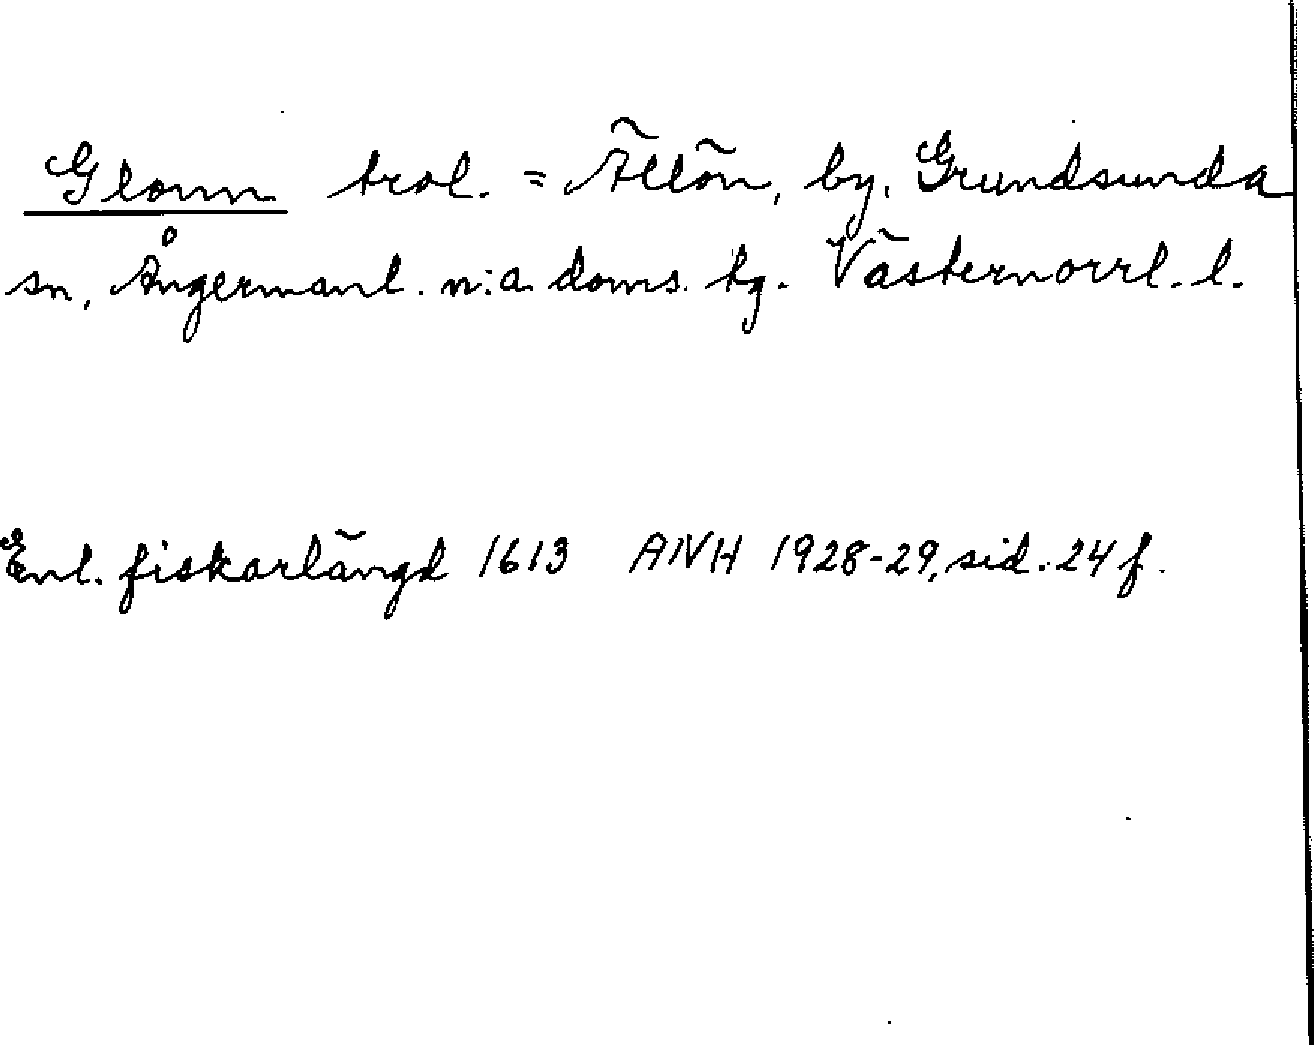 Glonn trol. = Ällön, by, Grundsunda
sn, Ångermanl. n:a doms. tg. Västernorrl. l.
Enl. fiskarlängd 1613 ANH 1928-29, sid. 24 f.